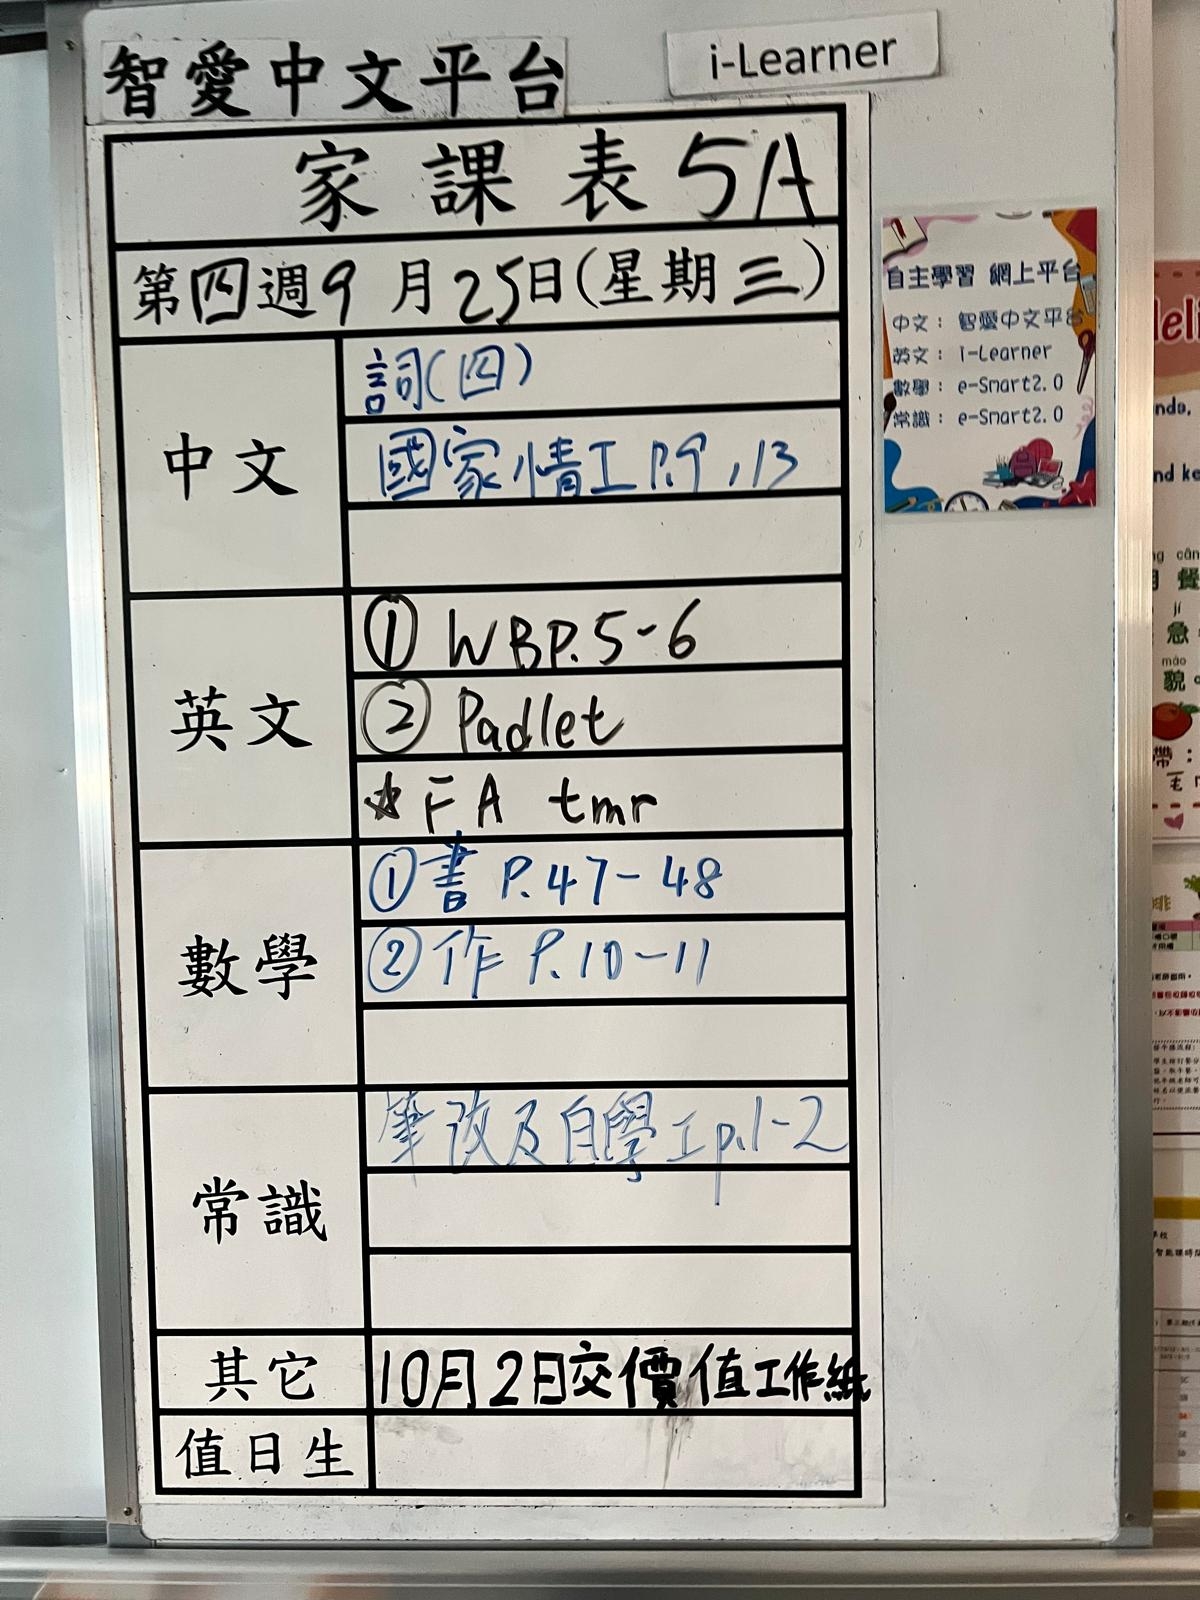 智愛中文平台
i-Learner
家課表 5A
第四週9月25日(星期三)
中文
詞(四)
國家情工 P.9,13
英文
① WB P.5-6
② Padlet
☆ FA tmr
數學
① 書 P.47-48
② 作 P.10-11
常識
筆改及自學工 p.1-2
其它
10月2日交價值工作紙
值日生
自主學習 網上平台
中文: 智愛中文平台
英文: i-Learner
數學: e-Smart2.0
常識: e-Smart2.0
nd ke
cān
餐
jí
急
mào
貌
帶: